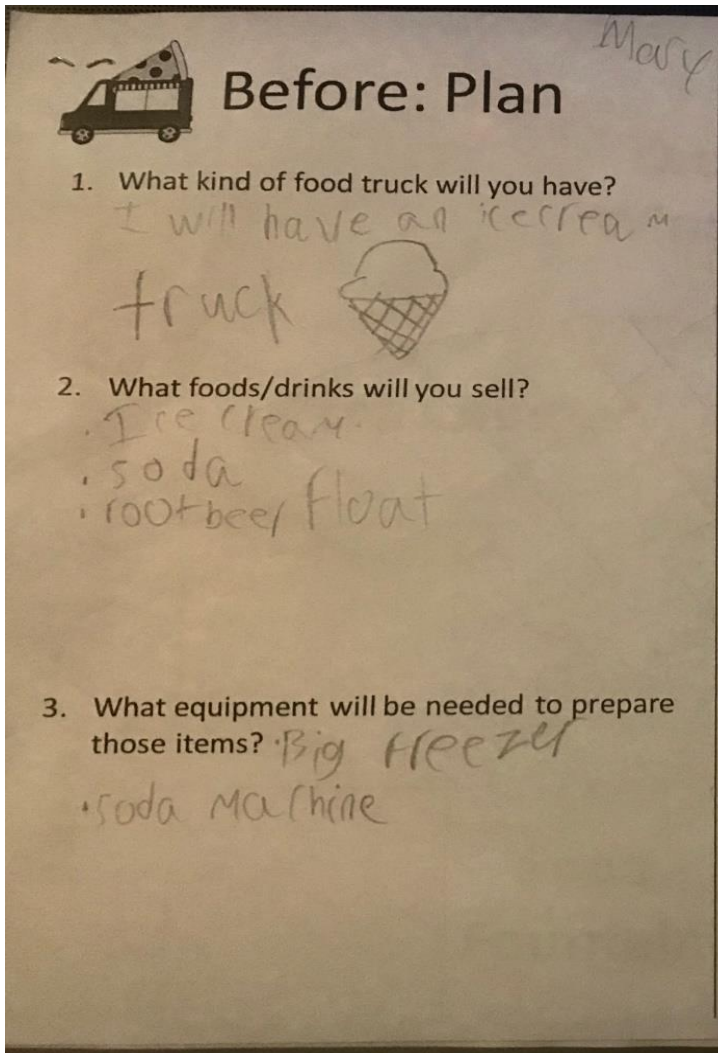 Mary
Before: Plan
1. What kind of food truck will you have?
I will have an icecream
truck
2. What foods/drinks will you sell?
. Ice cream.
. soda
. rootbeer float
3. What equipment will be needed to prepare
those items? . Big freezer
. soda machine